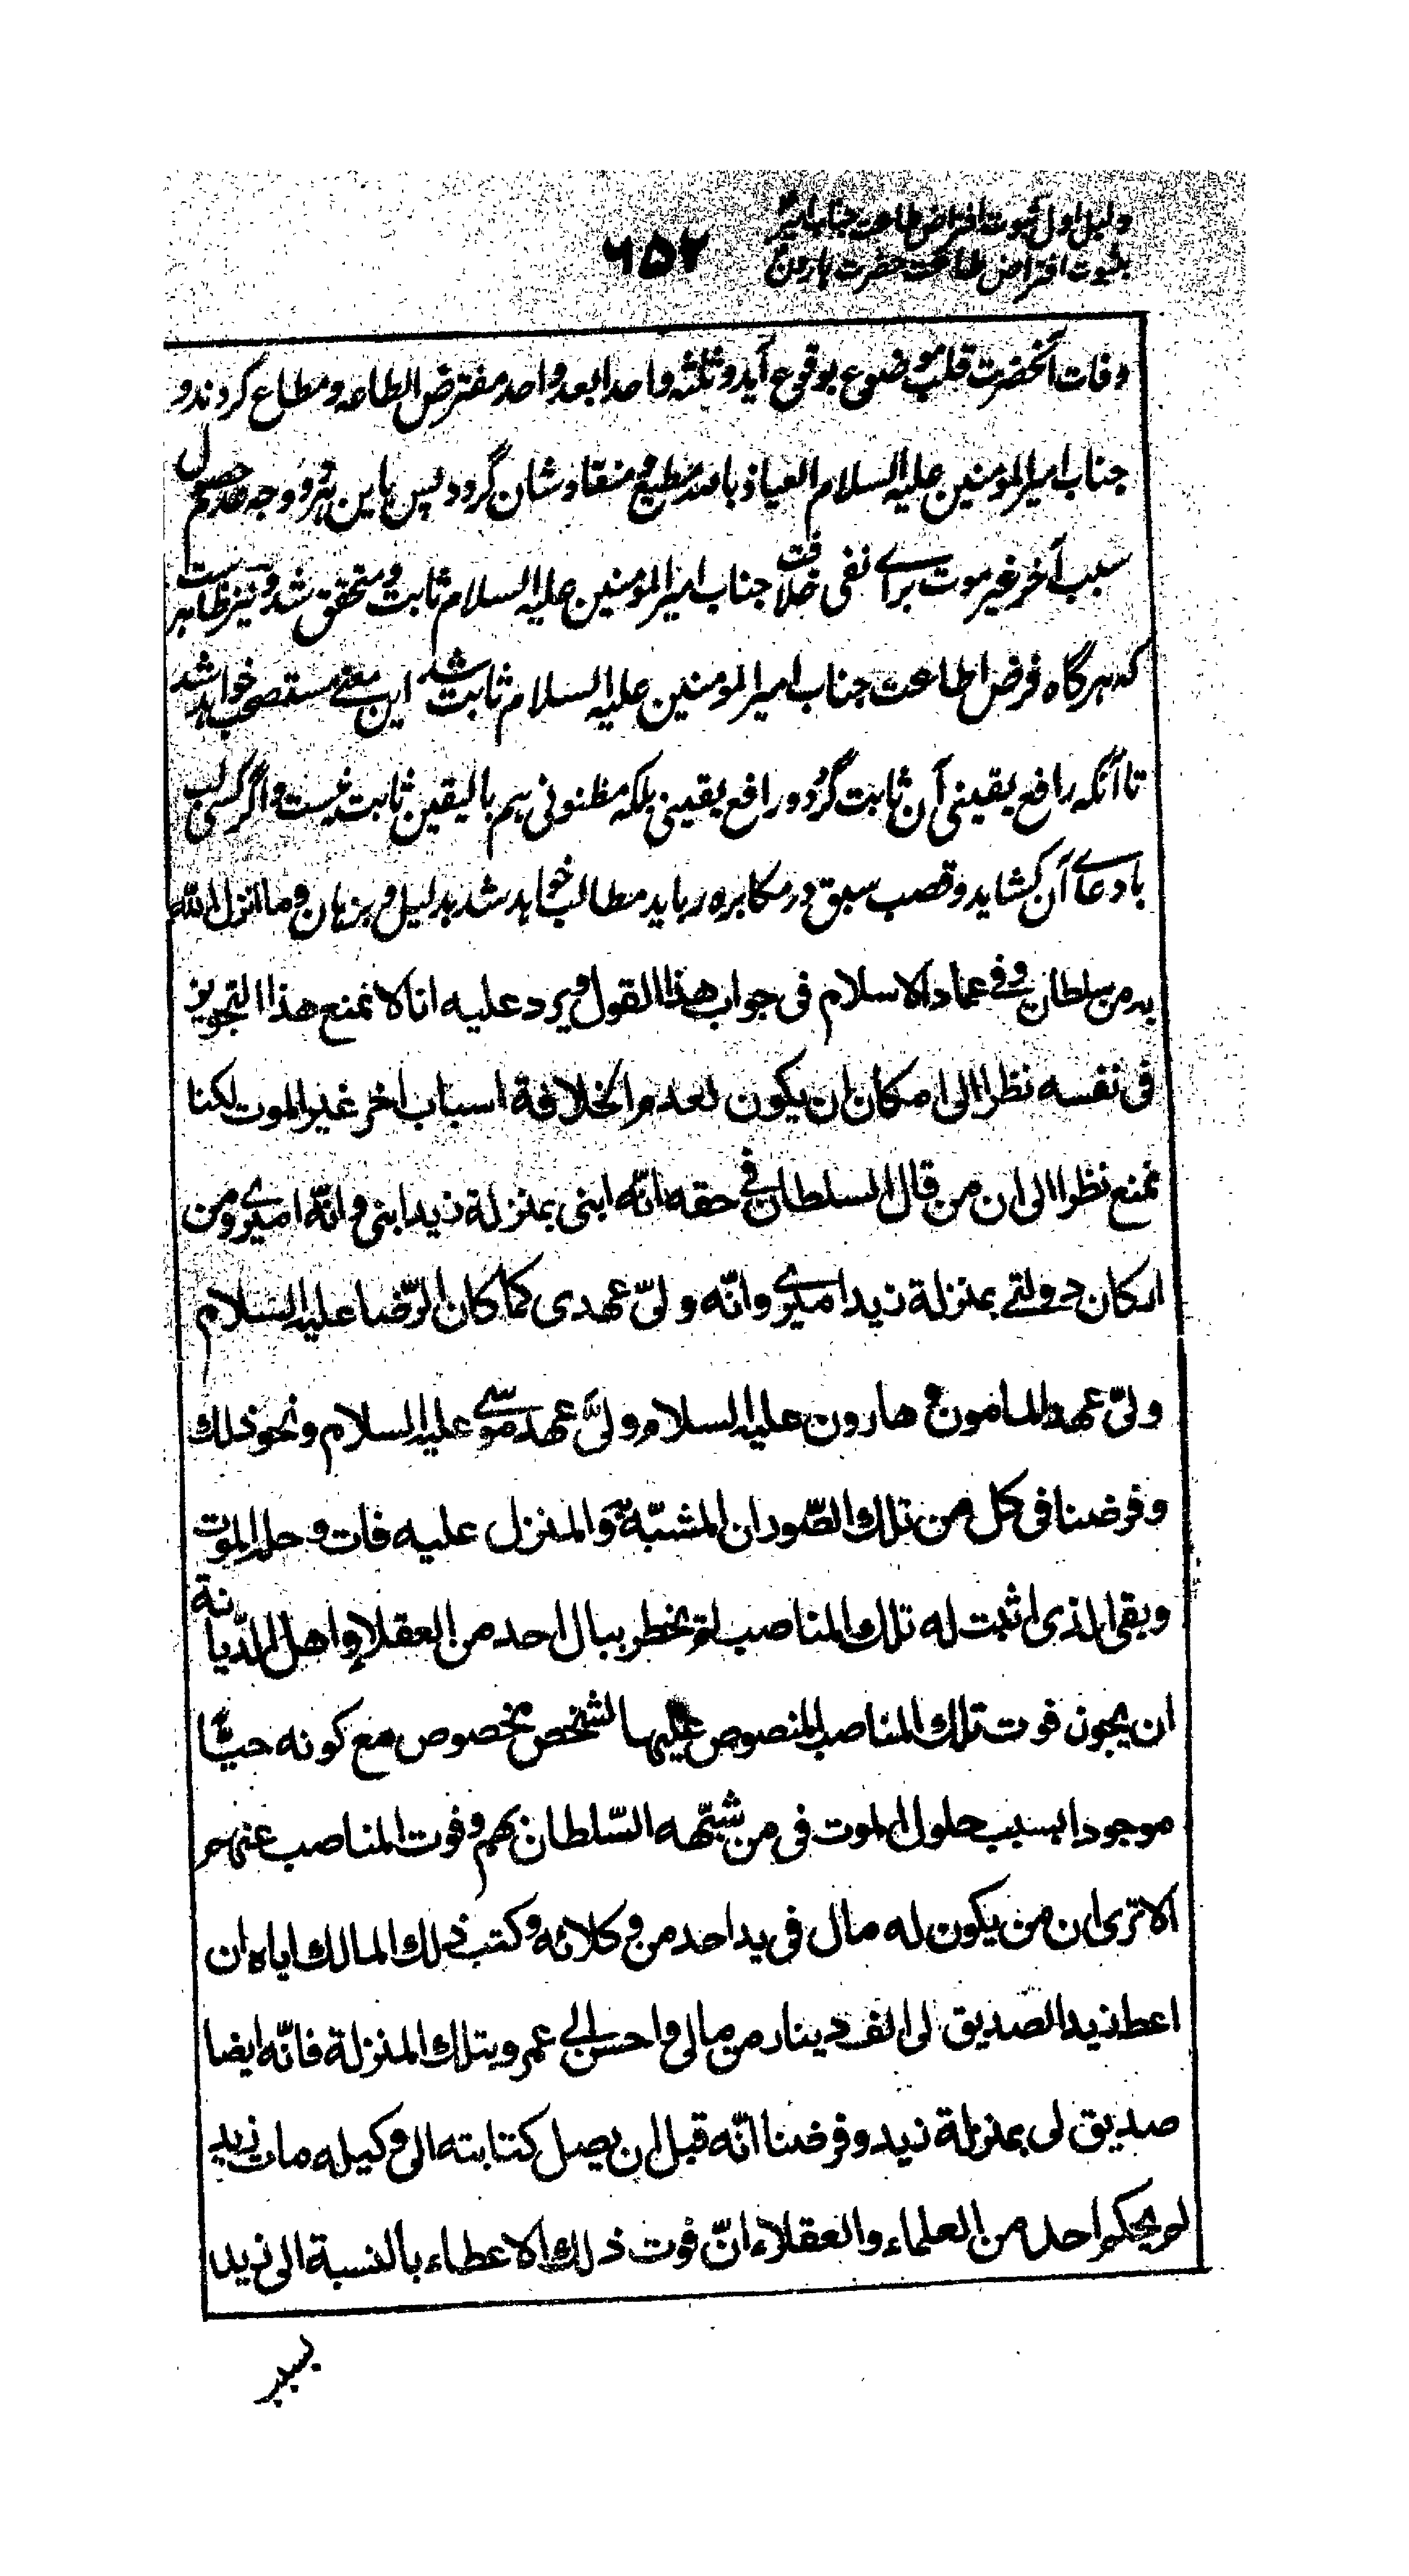 دلیل اول ثبوت افتراض طاعت جناب امیرؑ
بثبوت افتراض طاعت حضرت هارونؑ
۶۵۲
وفات آنحضرت قلب موضوع بوقوع آید و ثلثه واحدا بعد واحد مفترض الطاعه و مطاع کردند و
جناب امیرالمومنین علیه السلام العیاذ بالله مطیع و منقاد شان گردد پس باین هر دو وجه عدم حصول
سبب آخر غیر موت برای نفی خلافت جناب امیرالمومنین علیه السلام ثابت و متحقق شد و نیز ظاهرست
که هرگاه فرض اطاعت جناب امیرالمومنین علیه السلام ثابت شد این معنے مستصحب خواهد شد
تا آنکه رافع یقینی آن ثابت گردد و رافع یقینی بلکه مظنونی هم بالیقین ثابت نیست و اگر کسی لب
بادعاے آن کشاید و قصب سبق در مکابره رباید مطالب خواهد شد بدلیل و برهان و ما انزل الله
به من سلطان و فے عماد الاسلام فی جواب هذا القول و یرد علیه انا لا نمنع هذا التجویز
فی نفسه نظرا الی امکان ان یکون لعدم الخلافة اسباب اخر غیر الموت لکنا
نمنع نظرا الی ان من قال السلطان فے حقه انّه ابنی بمنزلة زید ابنی و انّه امیرے و من
ارکان دولتے بمنزلة زید امیرے و انّه ولیّ عهدی کما کان الرّضا علیه السلام
ولیّ عهد المامون و هارون علیه السلام ولیّ عهد موسے علیه السلام و نحو ذلک
و فرضنا فی کل من تلک الصّور ان المشبّه به و المنزل علیه فات و حله الموت
و بقی الذی اثبت له تلک المناصب لم یخطر ببال احد من العقلاء و اهل الدّیانة
ان یجوز فوت تلک المناصب المنصوص علیها لشخص مخصوص مع کونه حیّا
موجودا بسبب حلول الموت فی من شبّهه السّلطان بهم و فوت المناصب عنهم
الا تری ان من یکون له مال فی ید احد من وکلائه و کتب ذلک المالک ایاه ان
اعط زید الصدیق لی الف دینار من مالی و احسن الی عمرو بتلک المنزلة فانّه ایضا
صدیق لی بمنزلة زید و فرضنا انّه قبل ان یصل کتابته الی وکیله مات زید
لم یحکم احد من العلماء و العقلاء انّ فوت ذلک الاعطاء بالنسبة الی زید